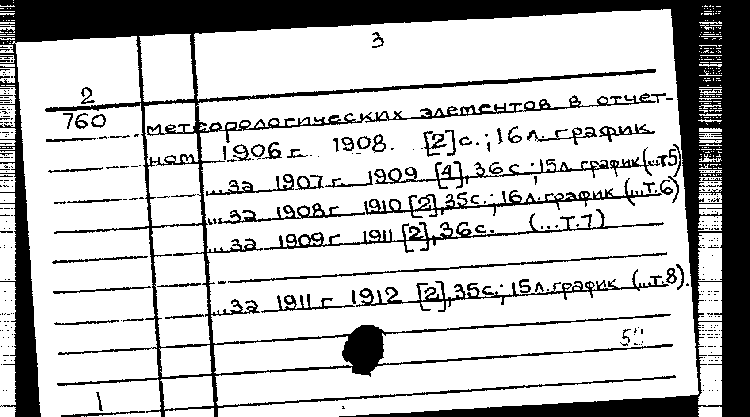 3
2
760
метеорологических элементов в отчет-
ном 1906 г. 1908. [2] с.; 16 л. график
...за 1907 г. 1909 [4], 36 с.; 15 л. график (...т.5)
...за 1908 г 1910 [2], 35 с.; 16 л. график (...т.6)
...за 1909 г 1911 [2], 36 с. (...т.7)
...за 1911 г 1912 [2], 35 с.; 15 л. график (...т.8).
1